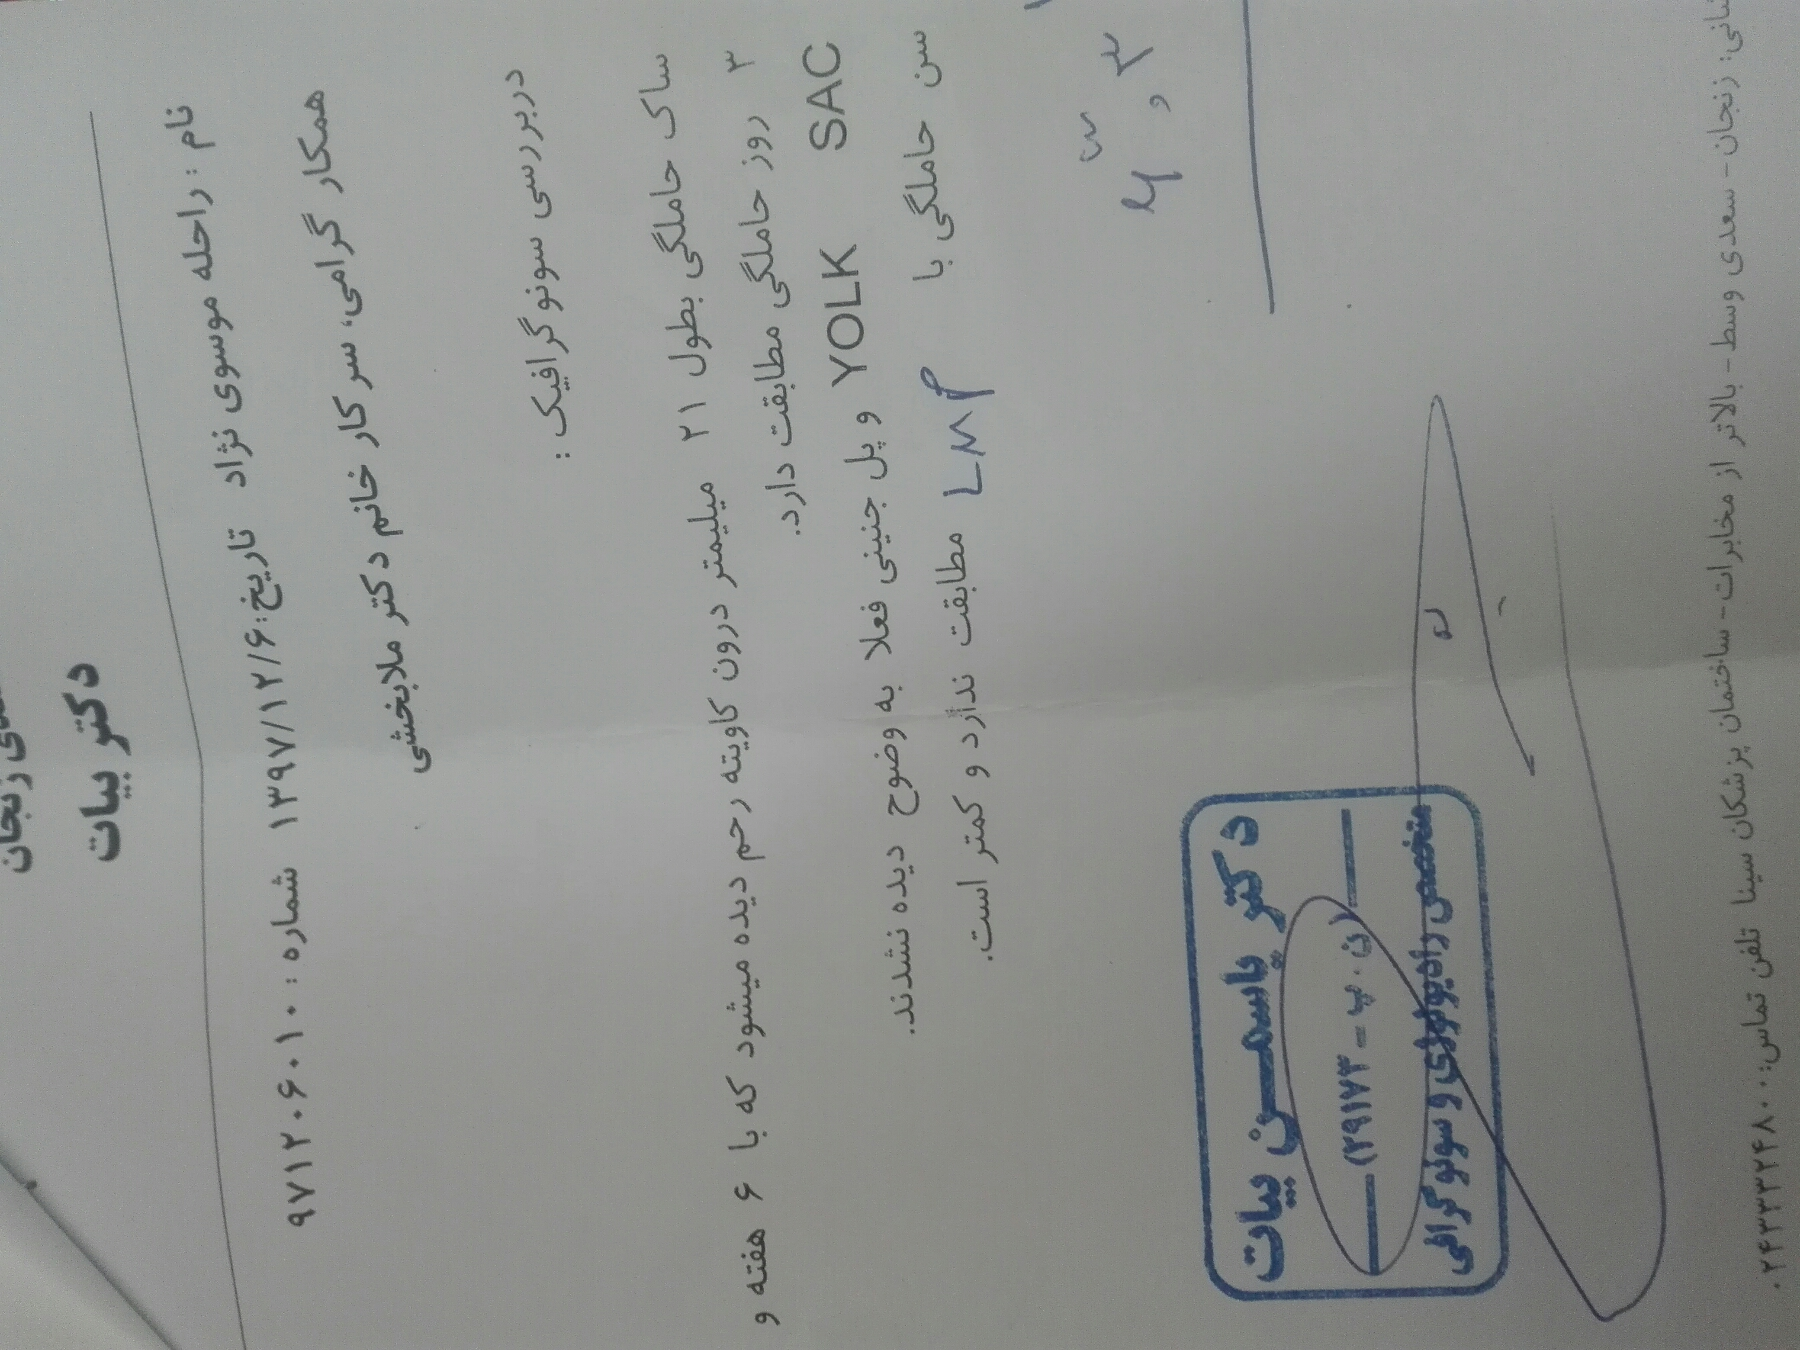 دکتر بیات
نام : راحله موسوی نژاد تاریخ:۱۳۹۷/۱۲/۶ شماره : ۹۷۱۲۰۶۰۱۰
همکار گرامی، سرکار خانم دکتر ملابخشی
دربررسی سونوگرافیک :
ساک حاملگی بطول ۲۱ میلیمتر درون کاویته رحم دیده میشود که با ۶ هفته و
۳ روز حاملگی مطابقت دارد.
YOLK SAC و پل جنینی فعلا به وضوح دیده نشدند.
سن حاملگی با LMP مطابقت ندارد و کمتر است.
دکتر یاسمن بیات
(ن . پ - ۲۹۱۷۳)
متخصص رادیولوژی و سونوگرافی
زنجان - سعدی وسط - بالاتر از مخابرات - ساختمان پزشکان سینا تلفن تماس: ۰۲۴۳۳۳۲۴۸۰۰